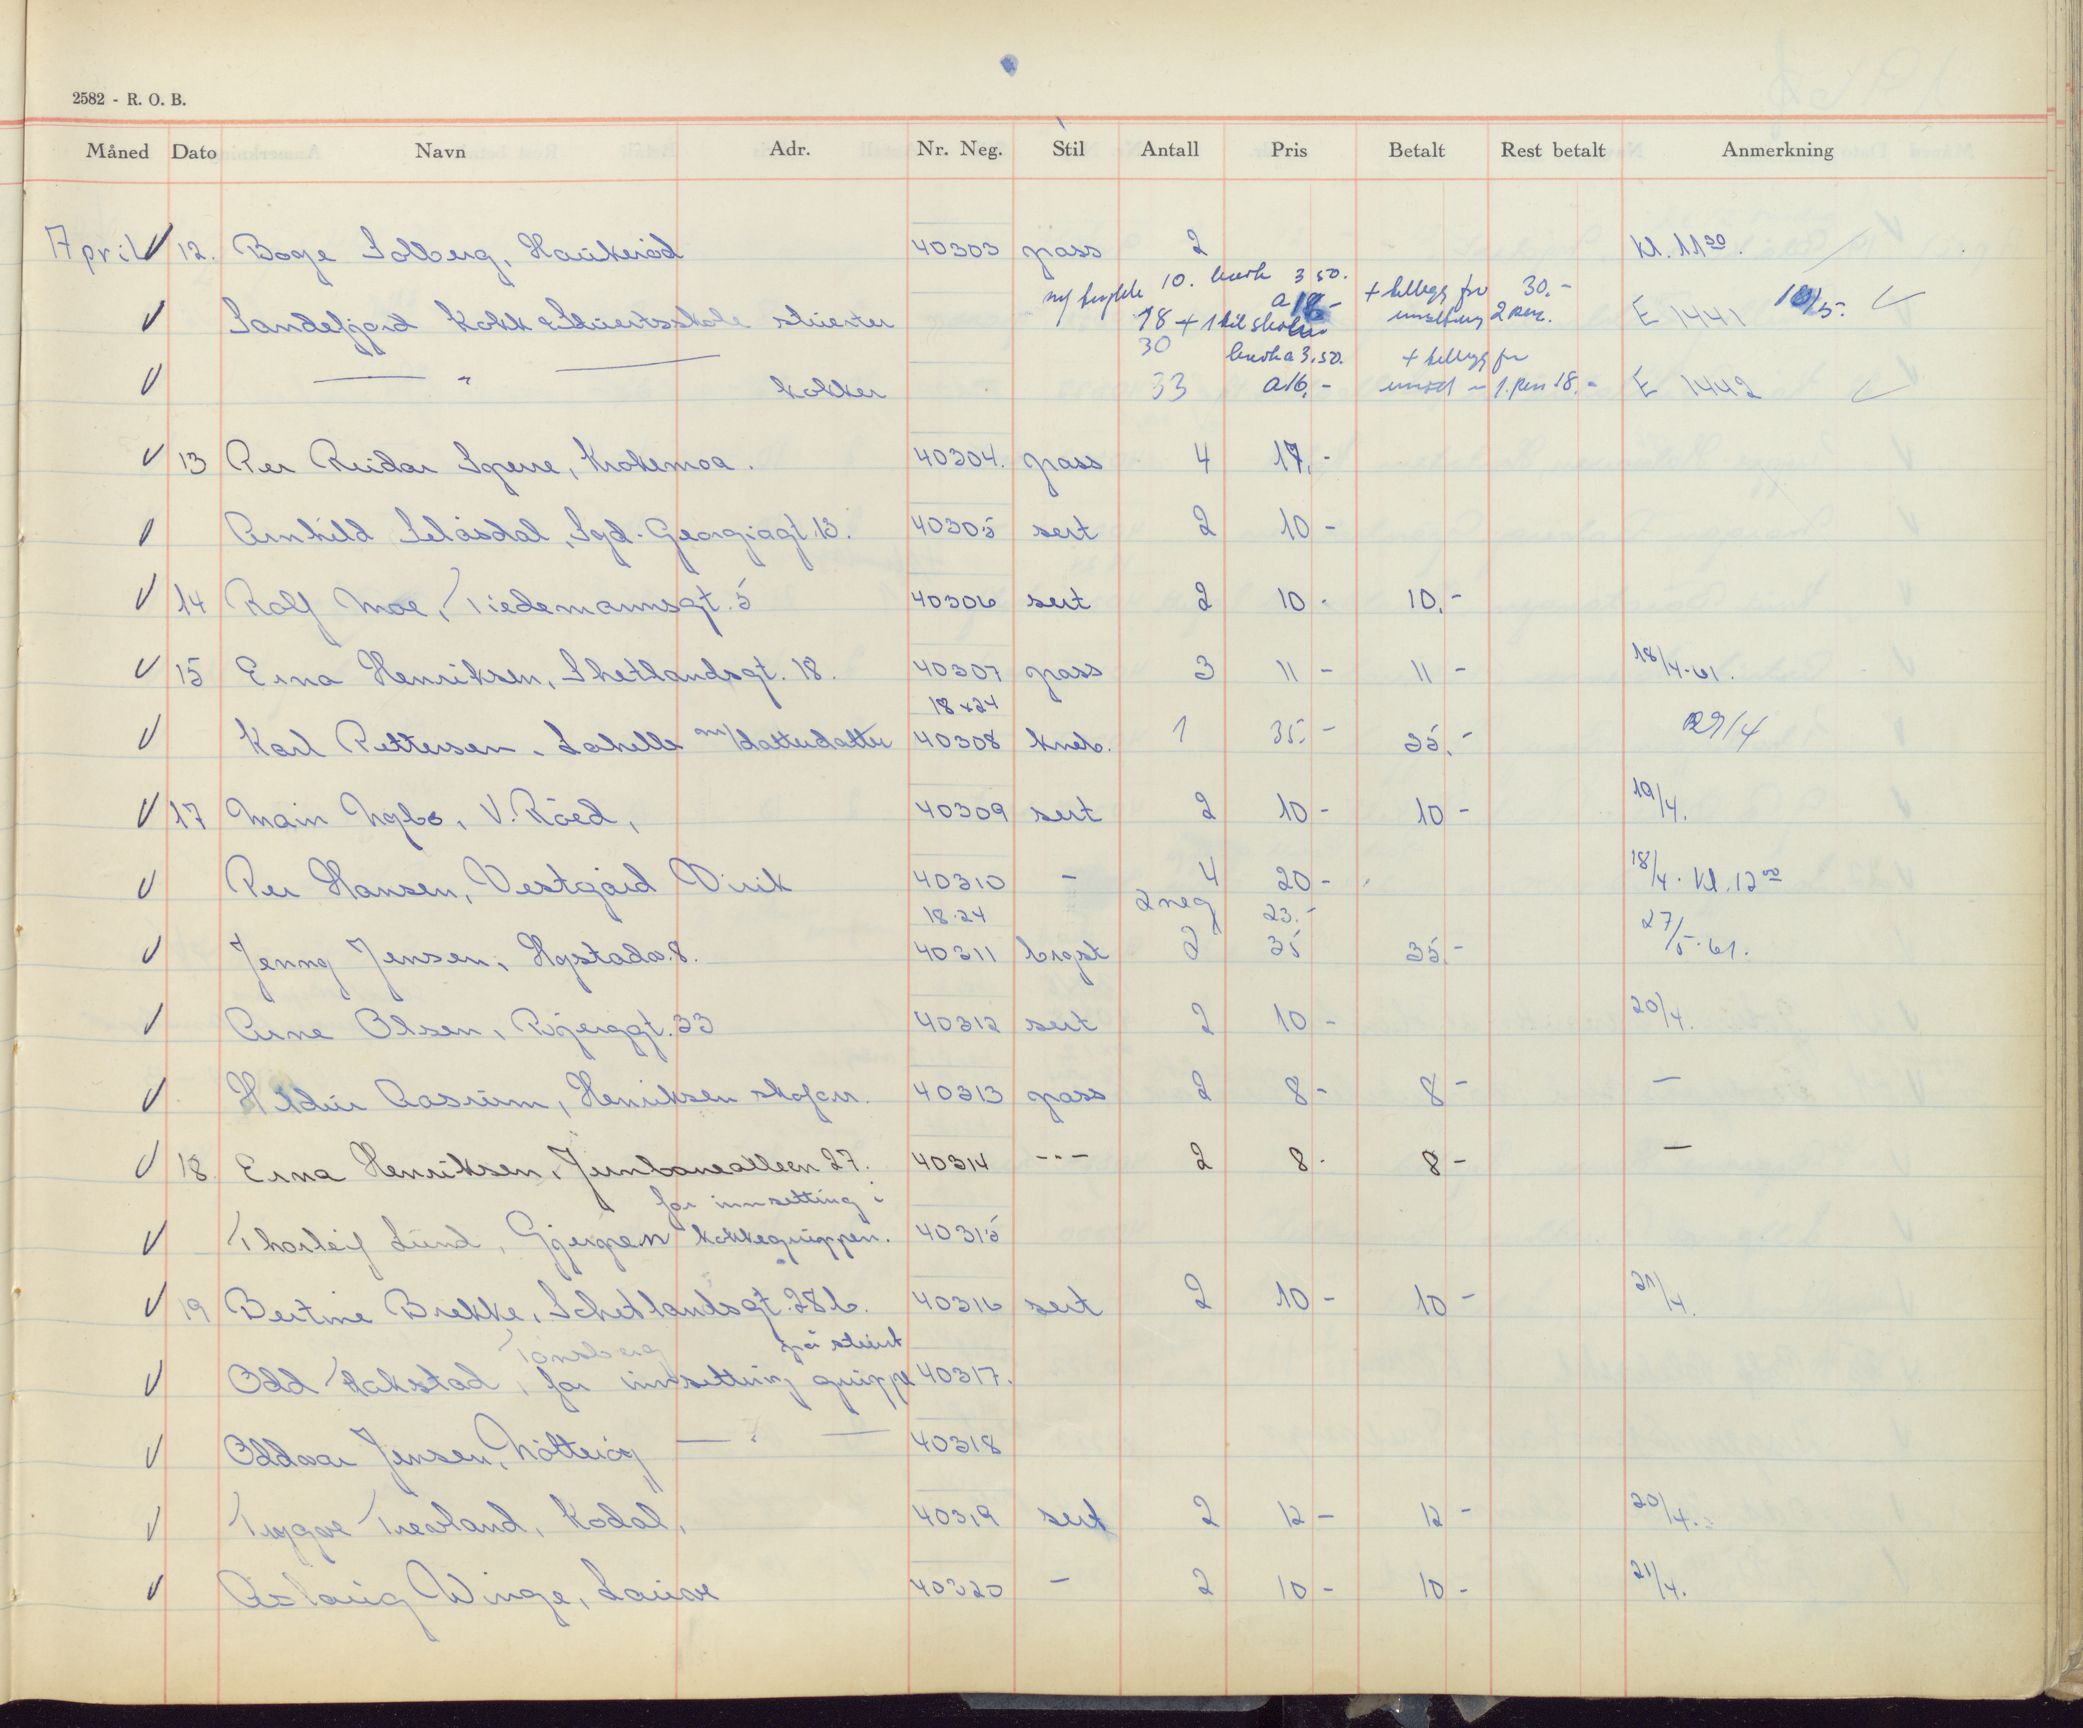 2582 - R. O. B.
Måned Dato Navn Adr. Nr. Neg. Stil Antall Pris Betalt Rest betalt Anmerkning
April 12. Boge Solberg, Haukeröd 40303 pass 2 Kl. 11 30.
10. 3 50.
Sandefjord Kokk & Stuertsskole stuerter 18 + 1 til skolen a 18.- + tillegg for 30.- 2 pers. E 1441 10/5.
30 a 3.50. + tillegg for
— " — kokker 33 a 16,- 1. pers 18.- E 1442
13 Per Reidar Sperre, Krokemoa. 40304. pass 4 17.-
Arnhild Selåsdal, Sgd. Georgiagt. 13. 40305 sert 2 10 -
14 Rolf Moe, Tiedemannsgt. 5 40306 sert 2 10 - 10.-
15 Erna Henriksen, Shetlandsgt. 18. 40307 pass 3 11 - 11 - 18/4-61.
18x24
Karl Pettersen, Lahelle m/datterdatter 40308 kneb. 1 35.- 35.- 29/4
17 V. Råed, 40309 sert 2 10 - 10 - 19/4.
Per Hansen, Vestgård Virik 40310 - 4 20 - 18/4. Kl. 12 00
18.24 2 neg 23.-
Jenny Jensen, Hystadv. 8. 40311 bryst 2 35 35.- 27/5-61.
Arne Olsen, Bjerggt. 33 40312 sert 2 10 - 20/4.
Aasrum, Henriksen skoforr. 40313 pass 2 8 - 8 - —
18. Erna Henriksen, Jernbanealleen 27. 40314 -"- 2 8 - 8 - —
for innsetting i
Thorleif Lund, Gjerpen kokkegruppen. 40315
19 Bertine Brekke, Schetlandsgt. 28 b. 40316 sert 2 10 - 10 - 21/4.
Tønsberg på stuert
Odd Hakstad, for innsetting gruppe 40317.
Oddvar Jensen, Nötteröy — " — 40318
Trygve Trevland, Kodal, 40319 sert 2 12 - 12 - 20/4.
Aslaug Winge, Lauve 40320 - 2 10 - 10 - 21/4.